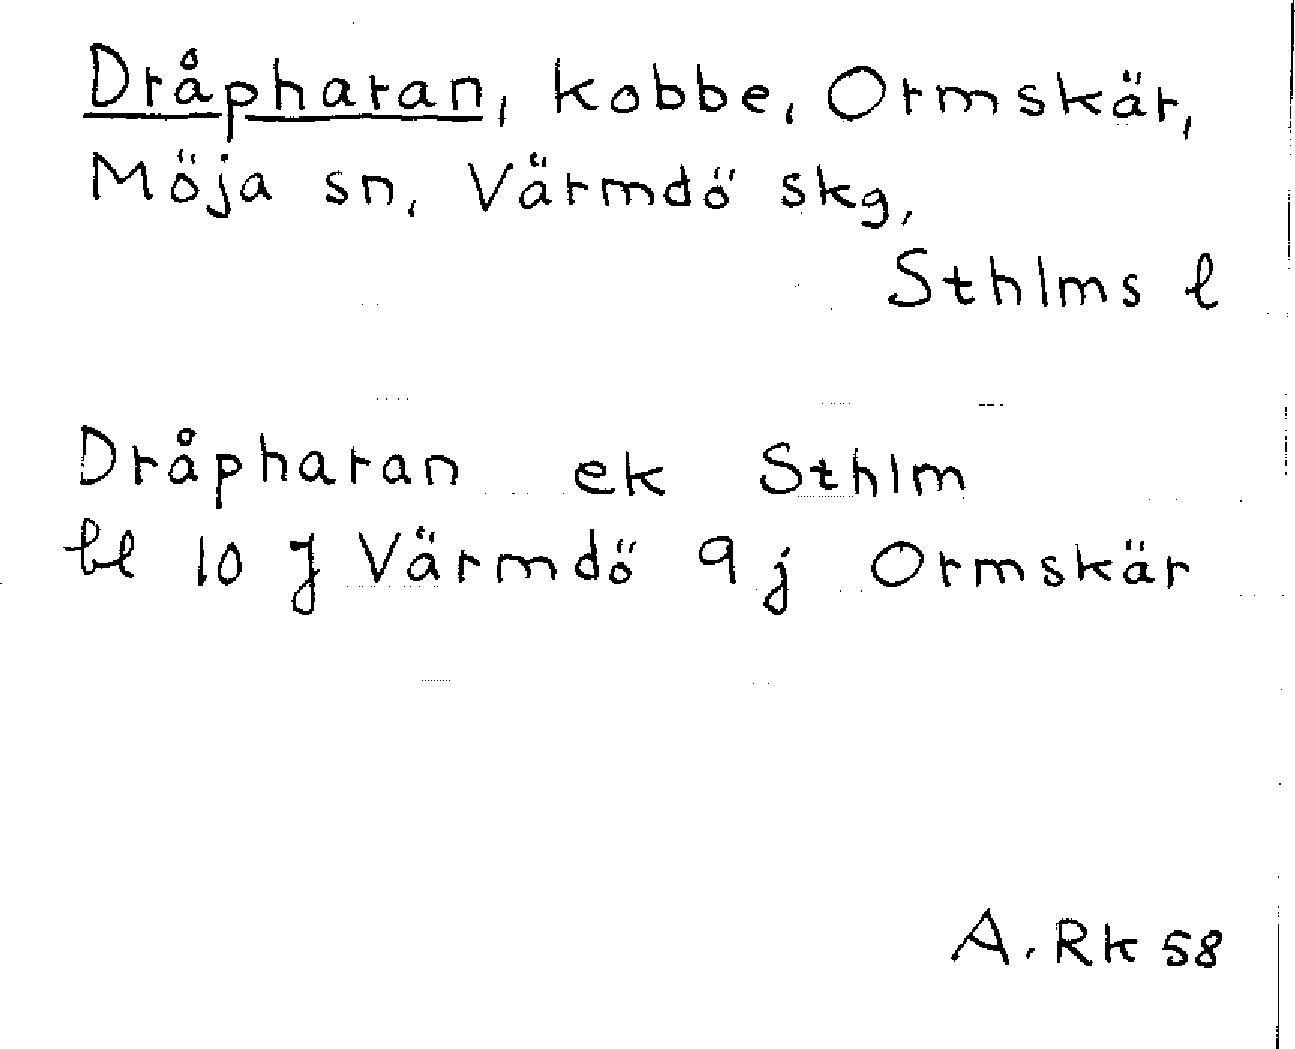 Dråpharan, kobbe, Ormskär,
Möja sn, Värmdö skg,
Sthlms l
Dråpharan ek Sthlm
bl 10 J Värmdö 9 j Ormskär
A. Rk 58